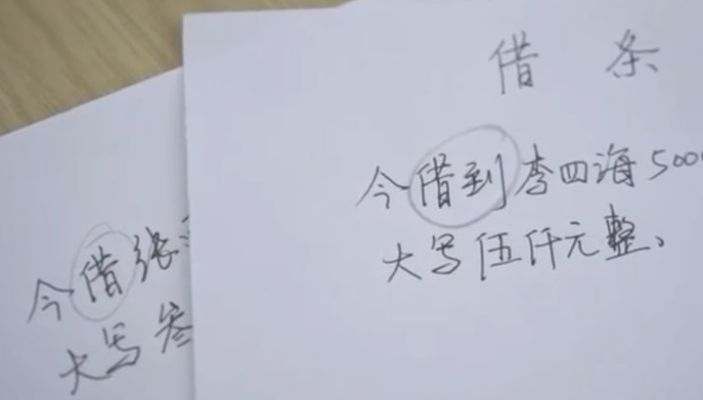 借条
今借到李四海500
大写伍仟元整、
今借张
大写叁